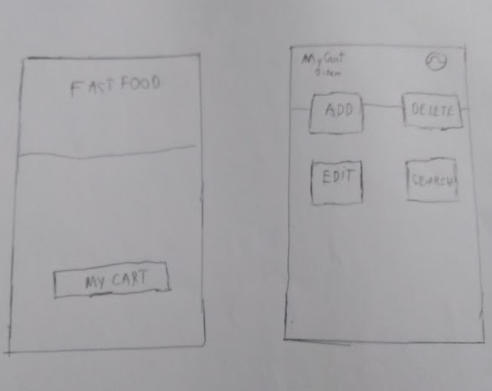 FAST FOOD
MY CART
My Cart
0 item
ADD
DELETE
EDIT
SEARCH